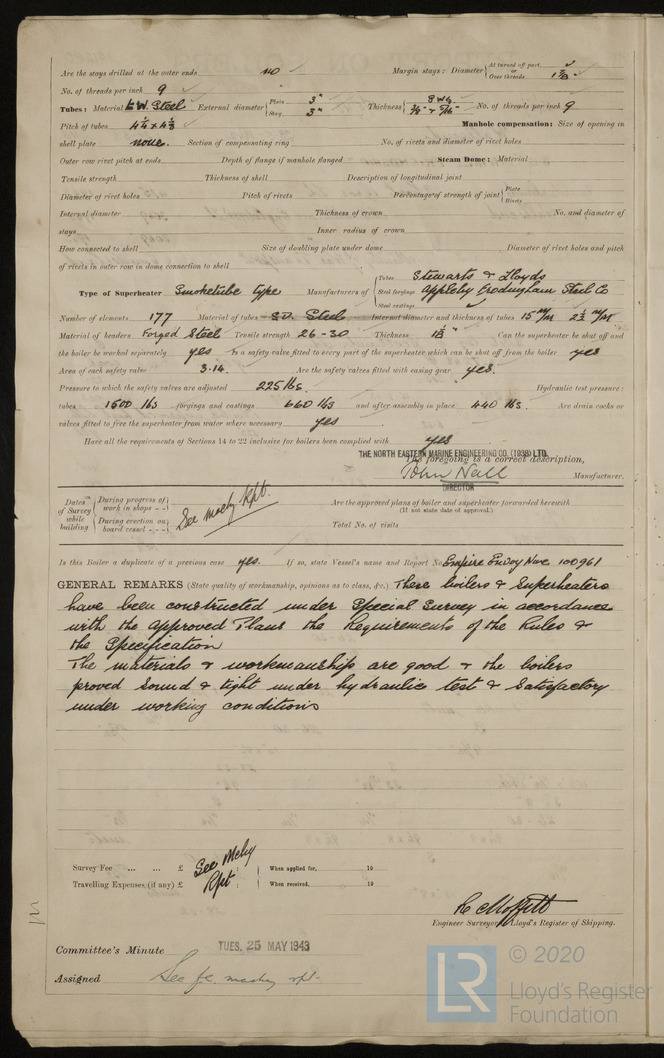 Are the stays drilled at the outer ends no Margin stays: Diameter At turned off part or Over threads 1 7/8"
No. of threads per inch 9
Tubes: Material L.W. Steel External diameter Plain 3" Stay 3" Thickness 8 WG 3/8" & 5/16" No. of threads per inch 9
Pitch of tubes 4 1/4 x 4 1/8 Manhole compensation: Size of opening in
shell plate none. Section of compensating ring No. of rivets and diameter of rivet holes
Outer row rivet pitch at ends Depth of flange if manhole flanged Steam Dome: Material
Tensile strength Thickness of shell Description of longitudinal joint
Diameter of rivet holes Pitch of rivets Percentage of strength of joint Plate Rivets
Internal diameter Thickness of crown No. and diameter of
stays Inner radius of crown
How connected to shell Size of doubling plate under dome Diameter of rivet holes and pitch
of rivets in outer row in dome connection to shell
Type of Superheater Smoketube type Manufacturers of Tubes Stewarts & Lloyds Steel forgings Appleby Frodingham Steel Co Steel castings
Number of elements 177 Material of tubes S.D. Steel Internal diameter and thickness of tubes 15 m/m 2 1/2 m/m
Material of headers Forged Steel Tensile strength 26-30 Thickness Can the superheater be shut off and
the boiler be worked separately yes Is a safety valve fitted to every part of the superheater which can be shut off from the boiler yes
Area of each safety valve 3.14. Are the safety valves fitted with easing gear yes.
Pressure to which the safety valves are adjusted 225 lbs. Hydraulic test pressure:
tubes 1500 lbs forgings and castings 660 lbs and after assembly in place 440 lbs. Are drain cocks or
valves fitted to free the superheater from water where necessary yes
Have all the requirements of Sections 14 to 22 inclusive for boilers been complied with yes
THE NORTH EASTERN MARINE ENGINEERING CO. (1938) LTD.
The foregoing is a correct description,
John Neill Manufacturer.
DIRECTOR
Dates of Survey while building During progress of work in shops - - During erection on board vessel - - - See mchy Rpt. Are the approved plans of boiler and superheater forwarded herewith
(If not state date of approval.)
Total No. of visits
Is this Boiler a duplicate of a previous case yes. If so, state Vessel's name and Report No. Empire Envoy Nwc 100961
GENERAL REMARKS (State quality of workmanship, opinions as to class, &c.) These boilers & Superheaters
have been constructed under Special Survey in accordance
with the approved Plans the Requirements of the Rules &
the Specification
The materials & workmanship are good & the boilers
proved sound & tight under hydraulic test & Satisfactory
under working conditions
Survey Fee ... ... £ See Mchy Rpt When applied for, 19
Travelling Expenses (if any) £ When received, 19
R C Moffitt
Engineer Surveyor Lloyd's Register of Shipping.
Committee's Minute TUES. 25 MAY 1943
Assigned See f.e. mchy rpt.
LR © 2020
Lloyd's Register
Foundation